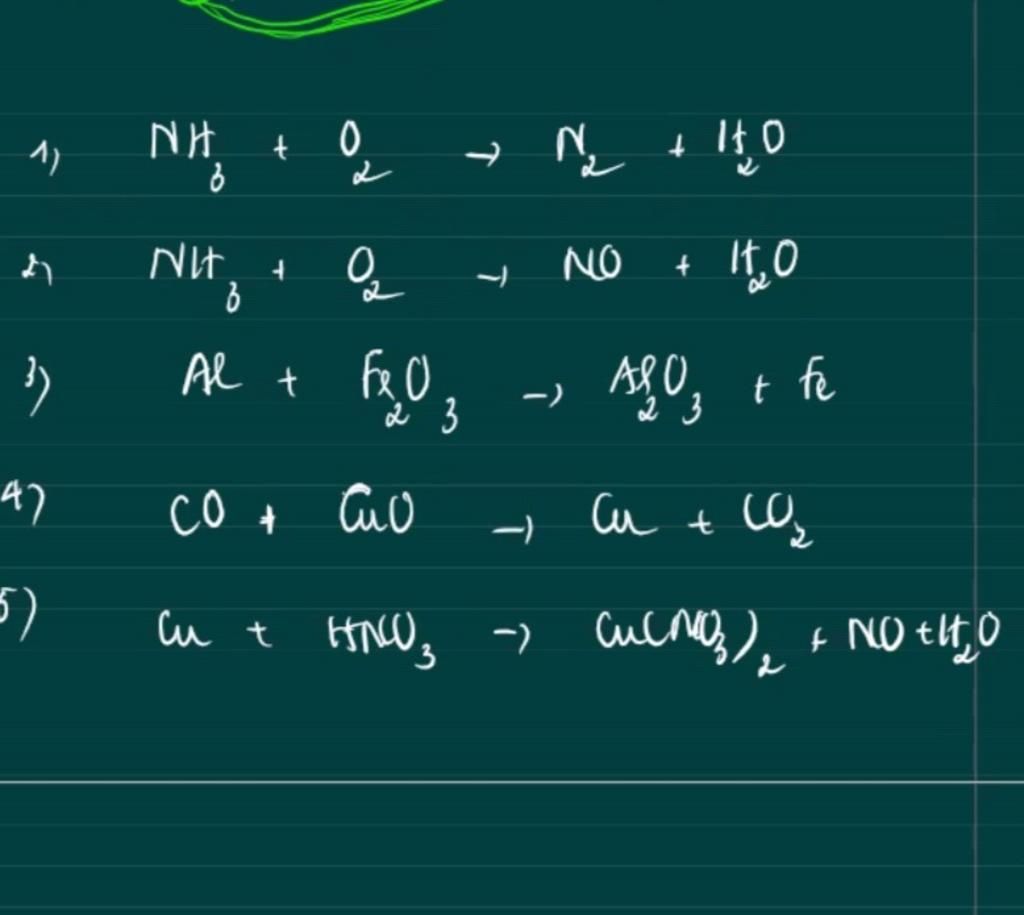 1) NH₃ + O₂ → N₂ + H₂O
2) NH₃ + O₂ → NO + H₂O
3) Al + Fe₂O₃ → Al₂O₃ + Fe
4) CO + CuO → Cu + CO₂
5) Cu + HNO₃ → Cu(NO₃)₂ + NO + H₂O